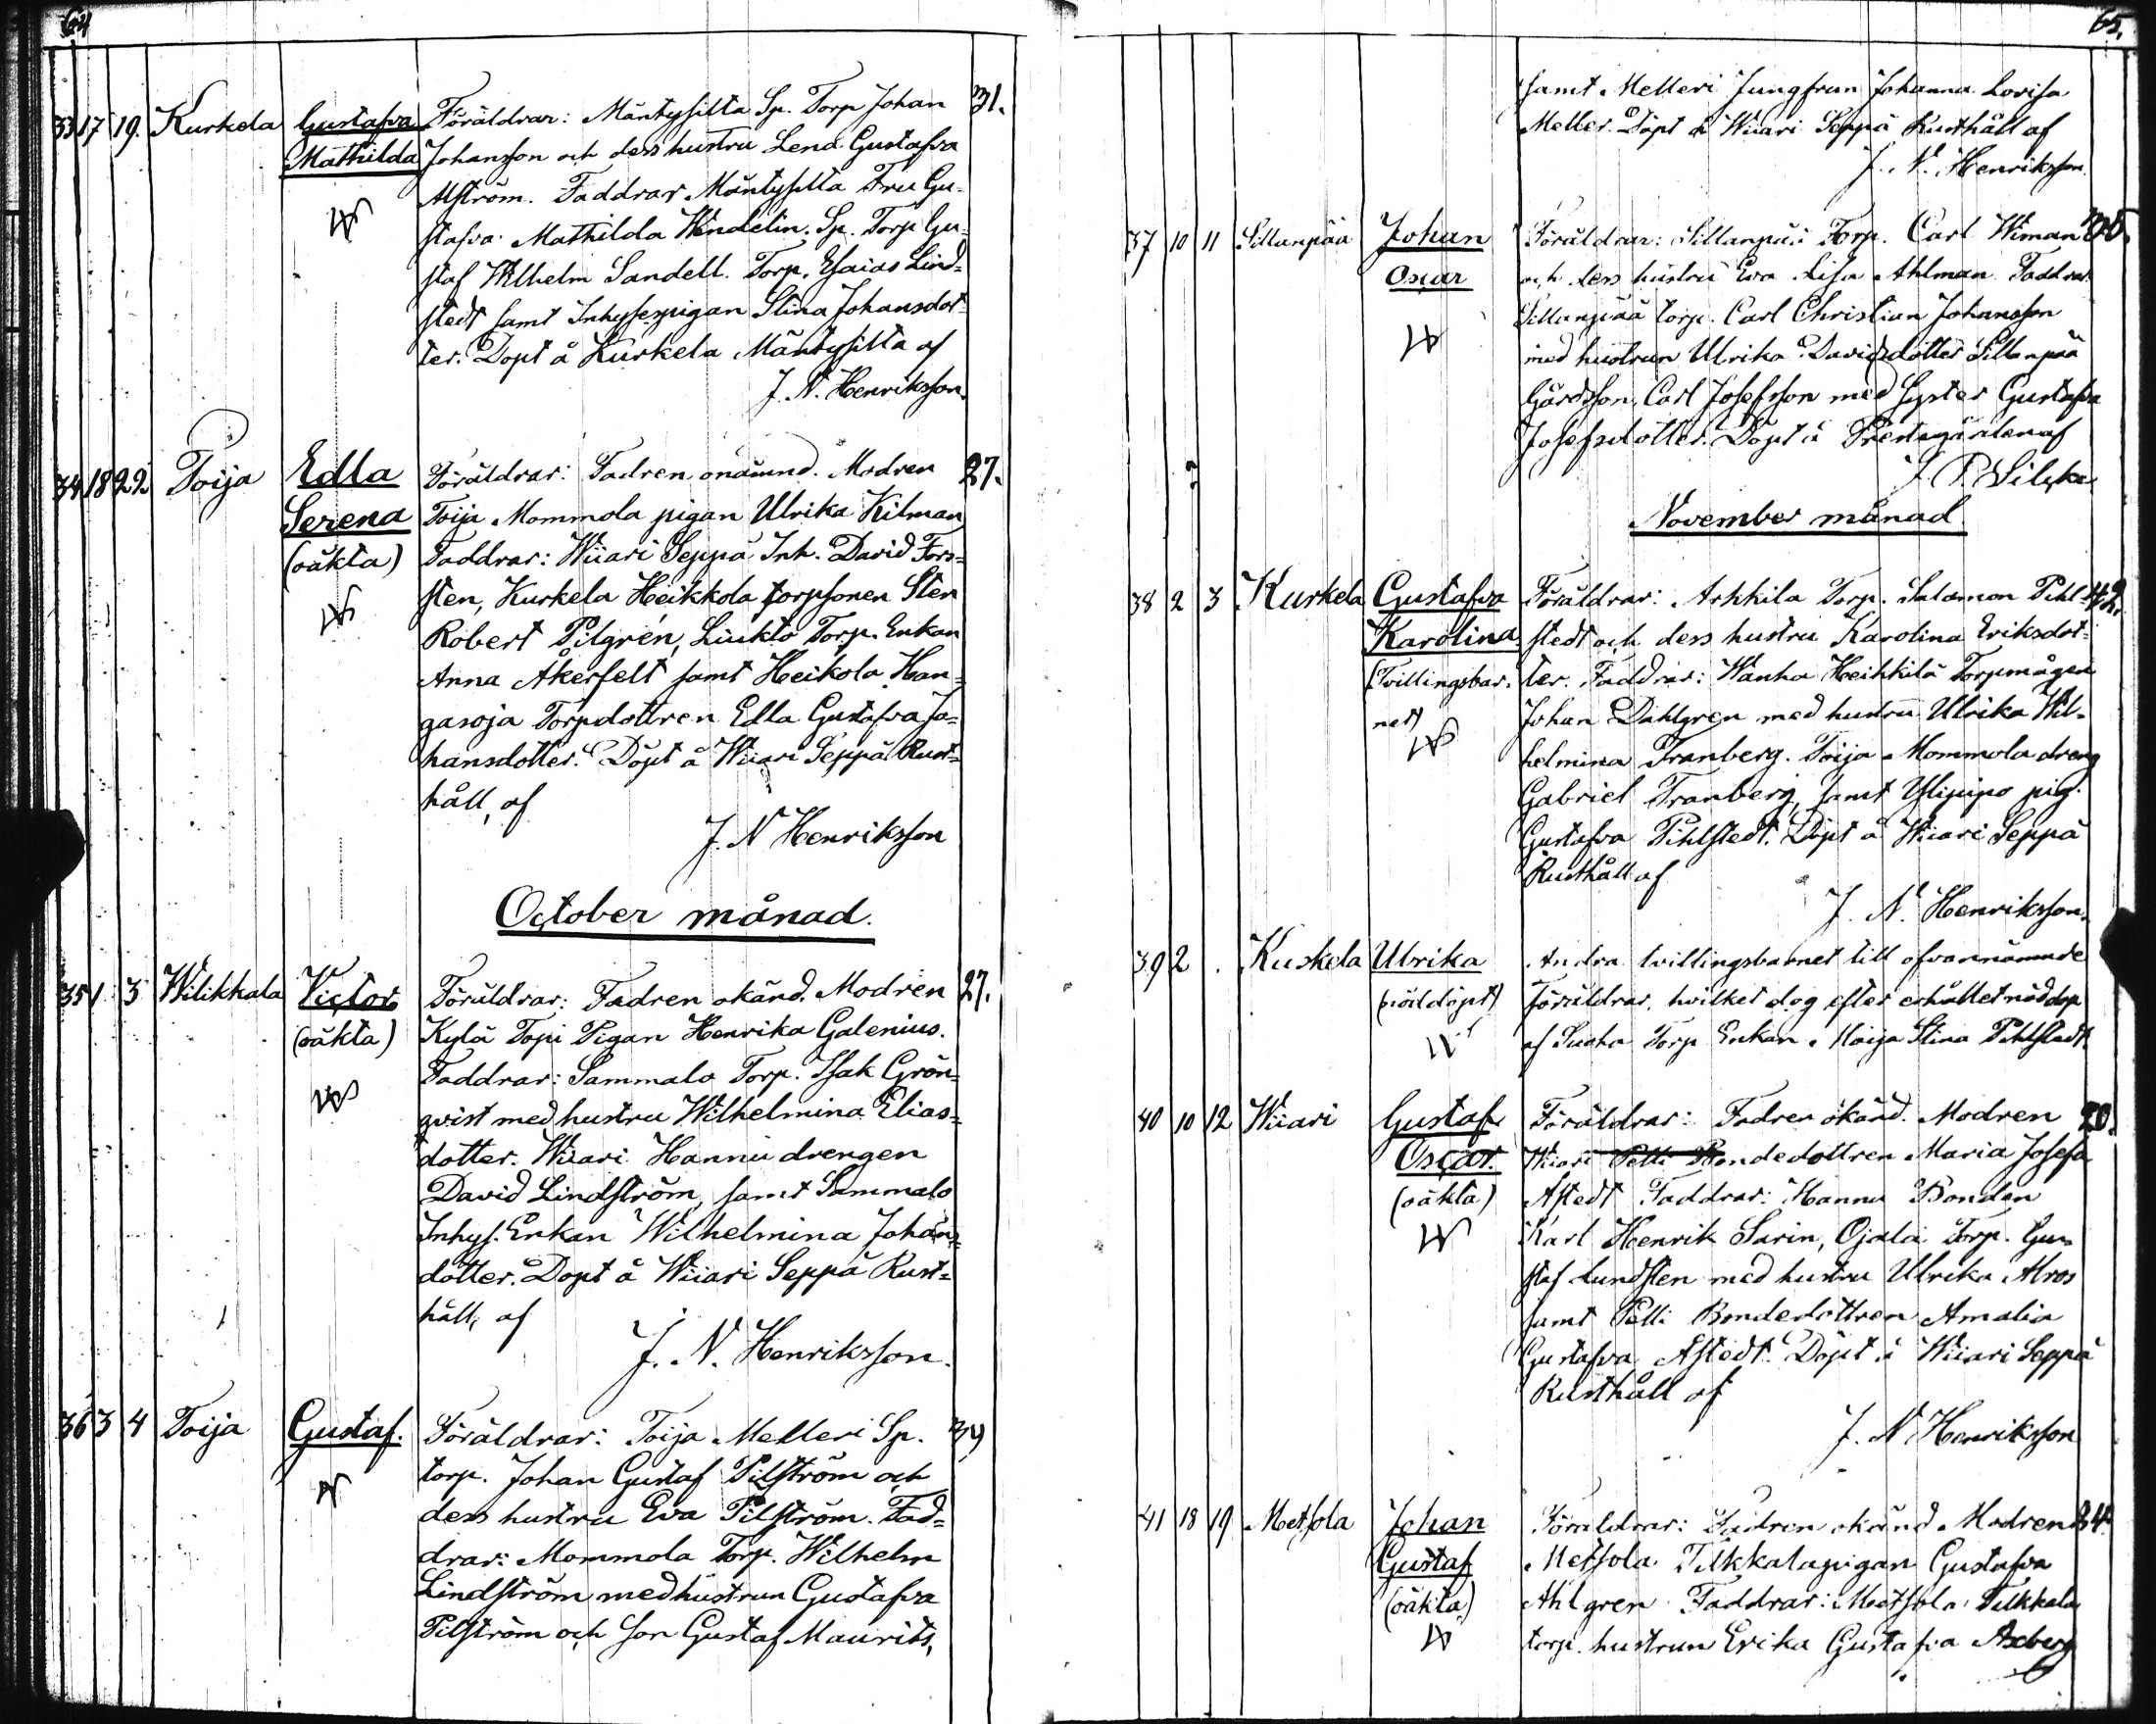 64
33 17 19. Kurkela Gustafva Föräldrar: Mäntysilta Sp. Torp Johan 31.
Mathilda Johansson och dess hustru Lena Gustafva
Alström. Faddrar Mäntysilta Fru Gu-
stafva Mathilda Wendelin. Sp. Torp. Gu-
staf Wilhelm Sandell. Torp. Esaias Lind-
stedt samt Inhysespigan Stina Johansdot-
ter. Döpt å Kurkela Mäntysilta af
J. N. Henriksson.
34 18 22 Toija Edla Föräldrar: Fadren onämnd. Modren 27.
Serena Toija Mommola pigan Ulrika Kilman
(oäkta) Faddrar: Wiiari Seppä Inh. David Fors-
sten, Kurkela Heikkola torpsonen Sten
Robert Pilgrén, Liukto Torp. Enkan
Anna Åkerfelt samt Heikola Han-
gasoja Torpdottren Edla Gustafva Jo-
hansdotter. Döpt å Wiiari Seppä Rust-
håll, af
J. N Henriksson
October månad.
35 1 3 Wilikkala Victor Föräldrar: Fadren okänd. Modren 27.
(oäkta) Kylä Topi Pigan Henrika Galenius.
Faddrar: Sammalo Torp. Isak Grön-
qvist med hustru Wilhelmina Elias-
dotter. Wiiari Hannu drengen
David Lindström, samt Sammalo
Inhys. Enkan Wilhelmina Johans-
dotter. Döpt å Wiiari Seppä Rust-
håll, af
J. N. Henriksson.
36 3 4 Toija Gustaf. Föräldrar: Toija Melleri Sp.
torp. Johan Gustaf Pilström och
dess hustru Eva Pilström. Fad-
drar: Mommola Torp. Wilhelm
Lindström med hustrun Gustafva
Pilström och son Gustaf Maurits,
65.
samt Melleri Jungfrun Johanna Lovisa
Meller. Döpt å Wiiari Seppä Rusthåll af
J. N. Henriksson.
37 10 11 Sillanpää Johan Föräldrar: Sillanpää Torp. Carl Wiman
Oscar och dess hustru Eva Lisa Ahlman Faddrar:
Sillanpää torp. Carl Christian Johansson
med hustrun Ulrika Davidsdotter Sillanpää
Gårdsson, Carl Josefsson med Syster Gustafva
Josefsdotter. Döpt å Prestegården af
November månad.
38 2 3 Kurkela Gustafva Föräldrar: Arkkila Torp. Salomon Pihl-
Karolina stedt och dess hustru Karolina Eriksdot-
(Tvillingsbar- ter. Faddrar: Wanha Heikkilä Torpmågen
net) Johan Dahlgren med hustru Ulrika Wil-
helmina Tranberg. Toija Mommola dreng
Gabriel Tranberg, samt Ylipipo pig.
Gustafva Pihlstedt. Döpt å Wiiari Seppä
Rusthåll af
J. N. Henriksson.
39 2 . Kuskela Ulrika Andra tvillingsbarnet till ofvannämnde
(nöddöpt) Föräldrar, hvilket dog efter erhållet nöddop
af Torp Enkan Maija Stina Pihlstedt
40 10 12 Wiiari Gustaf Föräldrar: Fadren okänd. Modren 20.
Oscar. Wiiari Pelli Bondedottren Maria Josefa
(oäkta) Åstedt Faddrar: Hannu Bonden
Karl Henrik Sarin, Ojala Torp. Gu-
staf Lundsten med hustru Ulrika Alros
samt Pelli Bondedottren Amalia
Gustafva Åstedt. Döpt å Wiiari Seppä
Rusthåll af
J. N Henriksson
41 18 19 Metsola Johan Föräldrar: Fadren okänd Modren 34.
Gustaf Metsola Tilkkalapigan Gustafva
(oäkta) Ahlgren Faddrar: Metsola Tilkkala
torp. hustrun Erika Gustafva Axberg